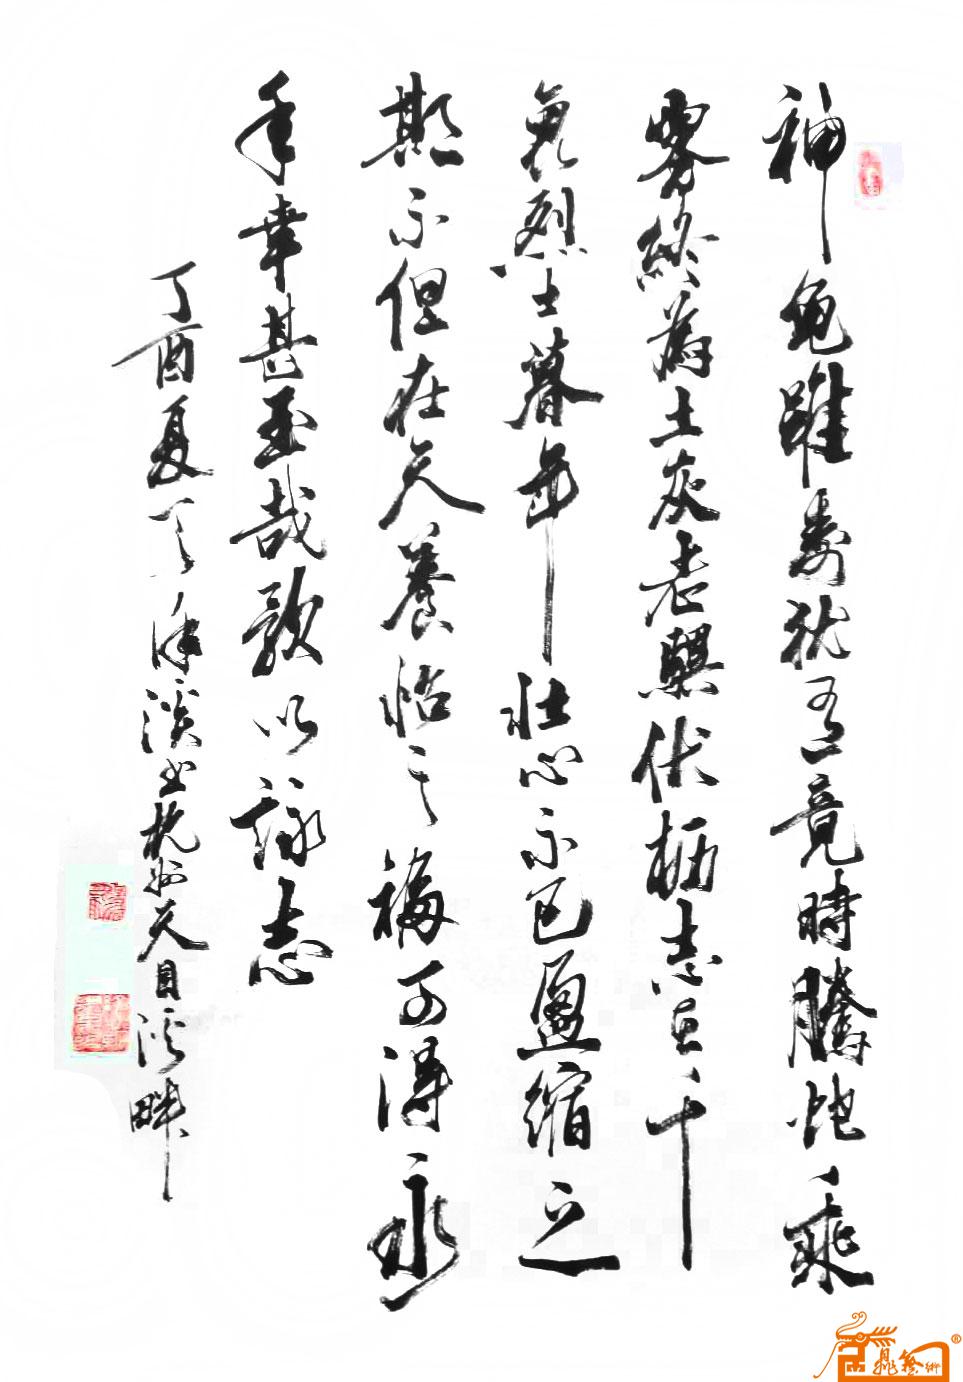 神龜雖壽猶有竟時騰蛇乘
雾終為土灰老骥伏枥志在千
里烈士暮年壮心不已盈缩之
期不但在天養怡之福可得永
年幸甚至哉歌以詠志
丁酉夏
溪书杭州天目溪畔